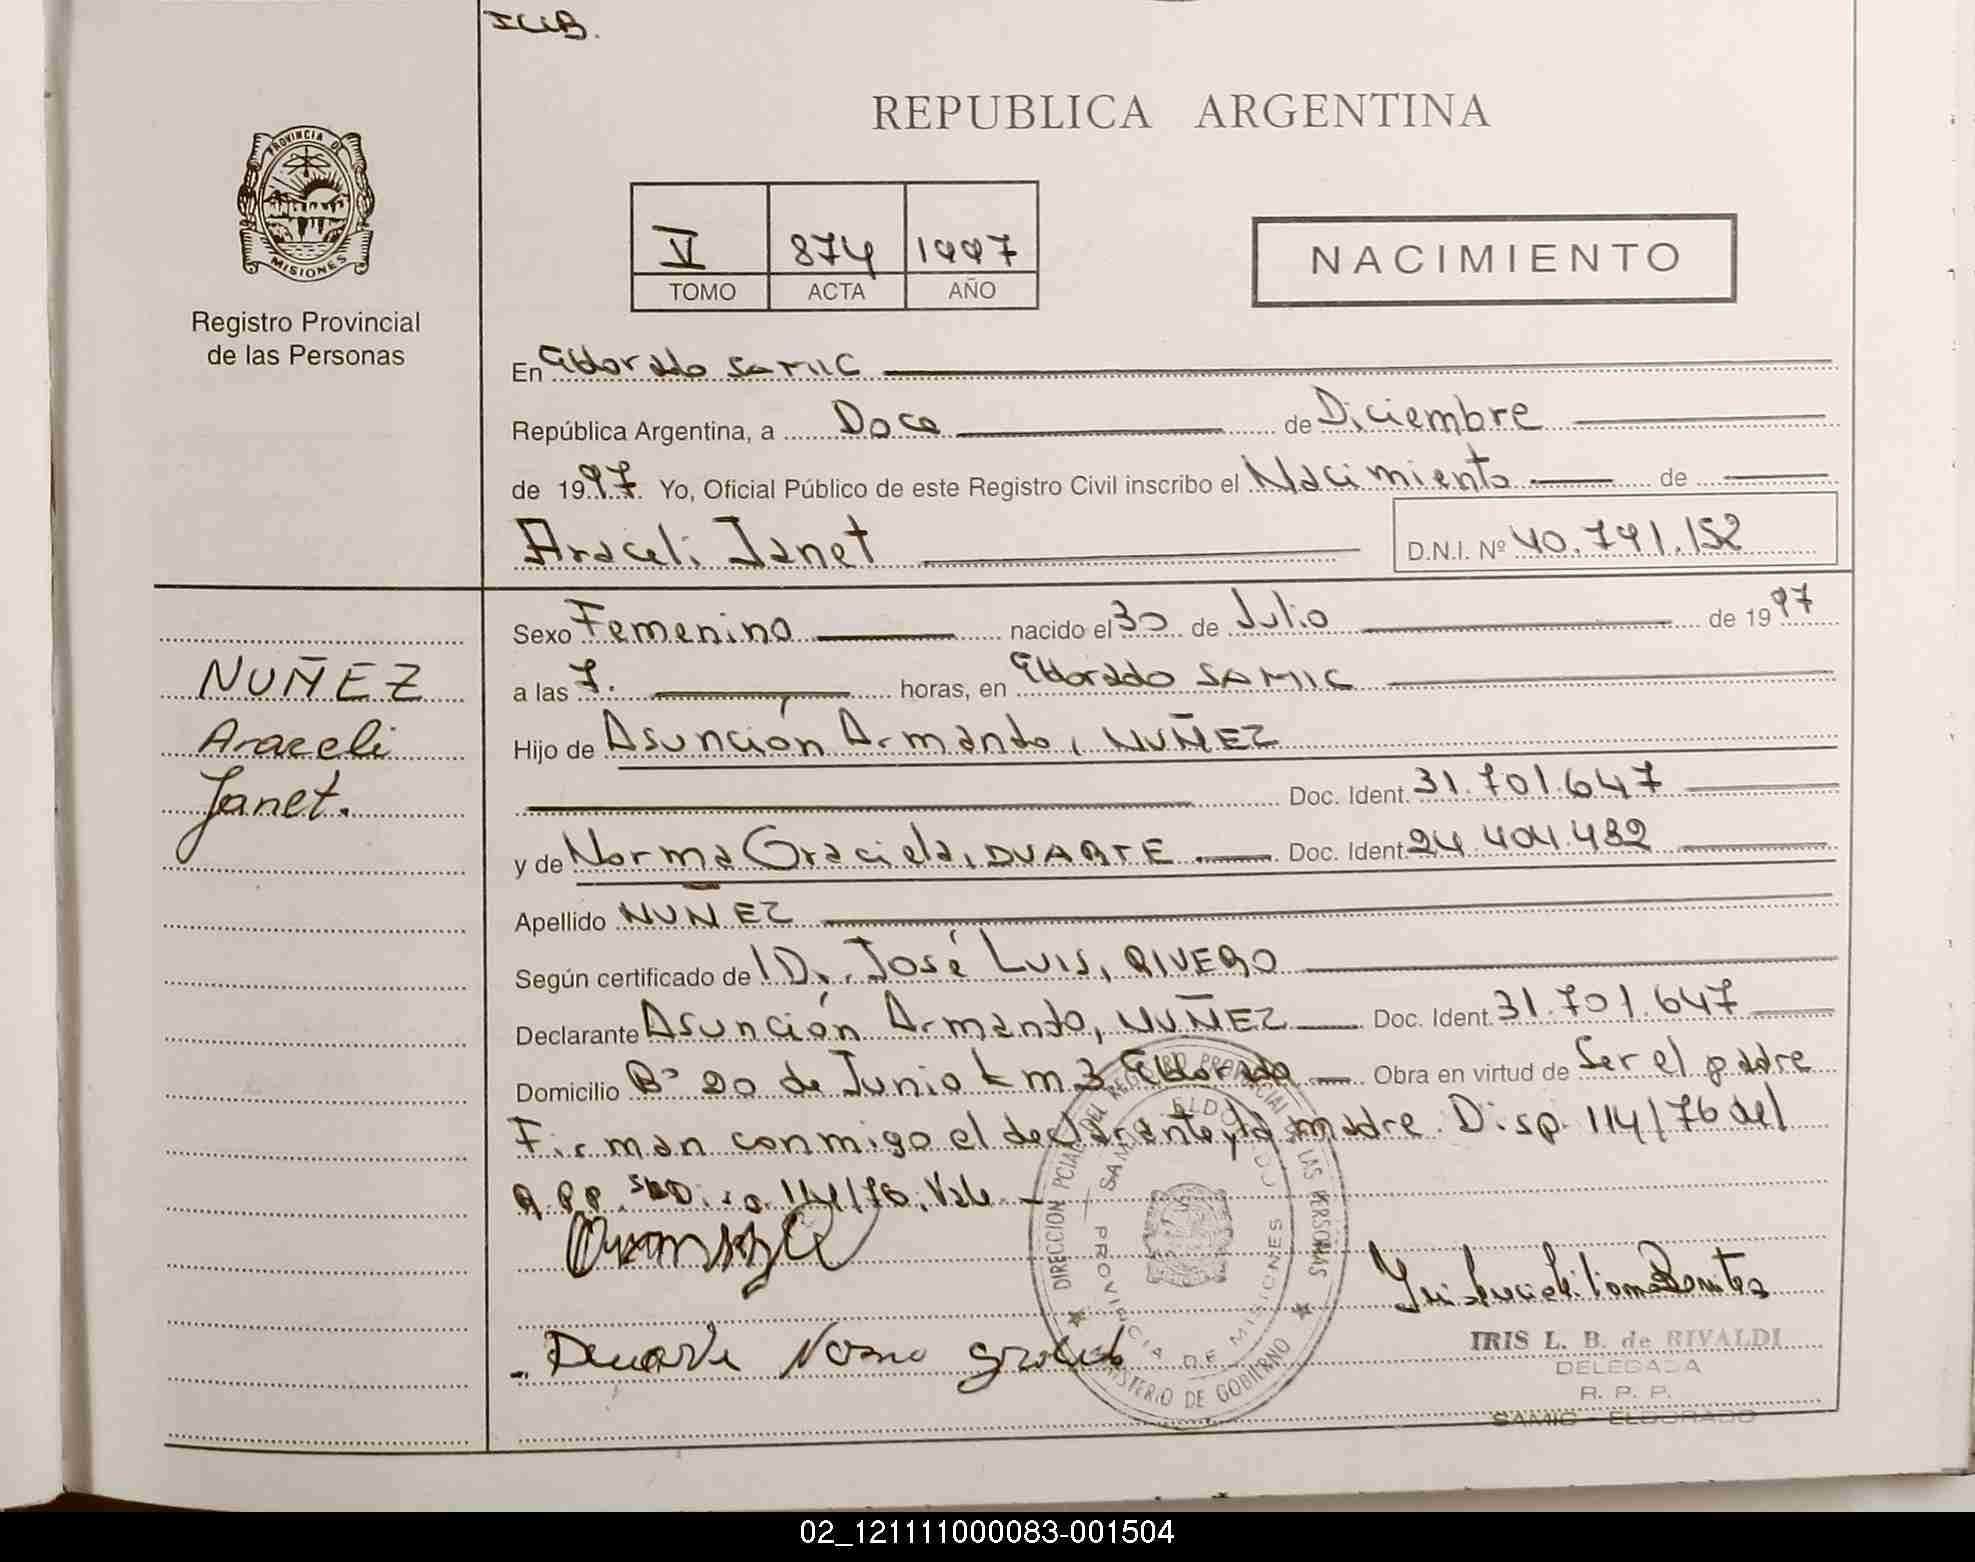 ILLB.
REPUBLICA ARGENTINA
PROVINCIA DE
MISIONES
Registro Provincial
de las Personas
V 874 1997
TOMO ACTA AÑO
NACIMIENTO
En Eldorado SAMIC
República Argentina, a Doce de Diciembre
de 1997. Yo, Oficial Público de este Registro Civil inscribo el Nacimiento de
Araceli Janet
D.N.I. Nº 40.741.152
Sexo Femenino nacido el 30 de Julio de 1997
NUÑEZ
Araceli
Janet.
a las 7. horas, en Eldorado SAMIC
Hijo de Asunción Armando, NUÑEZ
Doc. Ident. 31.701.647
y de Norma Graciela, DUARTE Doc. Ident. 24.404.432
Apellido NUÑEZ
Según certificado de Dr. José Luis, RIVERO
Declarante Asunción Armando, NUÑEZ Doc. Ident. 31.701.647
Domicilio Bº 20 de Junio km 3 Eldorado Obra en virtud de Ser el padre
Firman conmigo el declarante y la madre. Disp. 114/76 del
R.P.P. Disp. 114/76. Vale
DIRECCION PCIAL. DEL REGISTRO PROVINCIAL DE LAS PERSONAS
SAMIC ELDORADO
PROVINCIA DE MISIONES
MINISTERIO DE GOBIERNO
Duarte Norma Graciela
IRIS L. B. de RIVALDI
DELEGADA
R. P. P.
SAMIC - ELDORADO
02_121111000083-001504